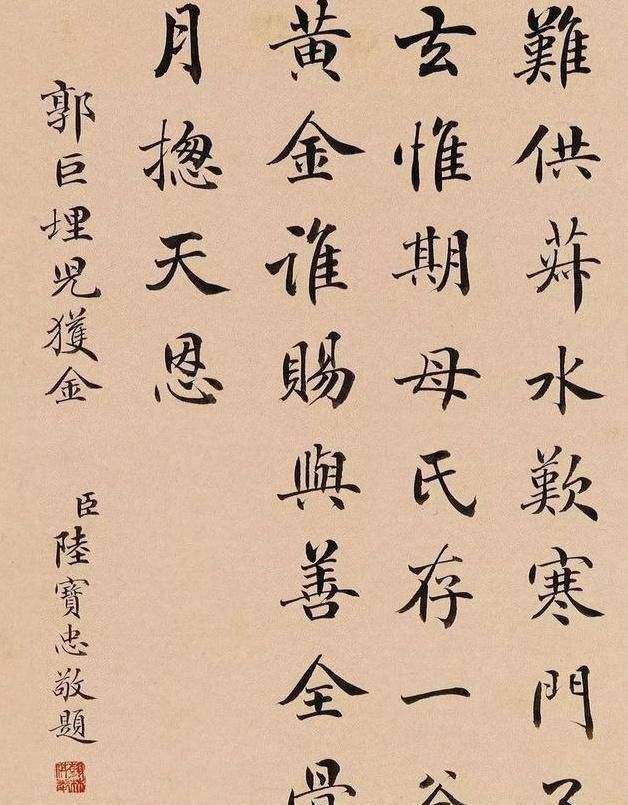 難供菽水歎寒門
玄惟期母氏存一
黄金誰賜與善全骨
月摠天恩
郭巨埋児獲金
臣陸寶忠敬題